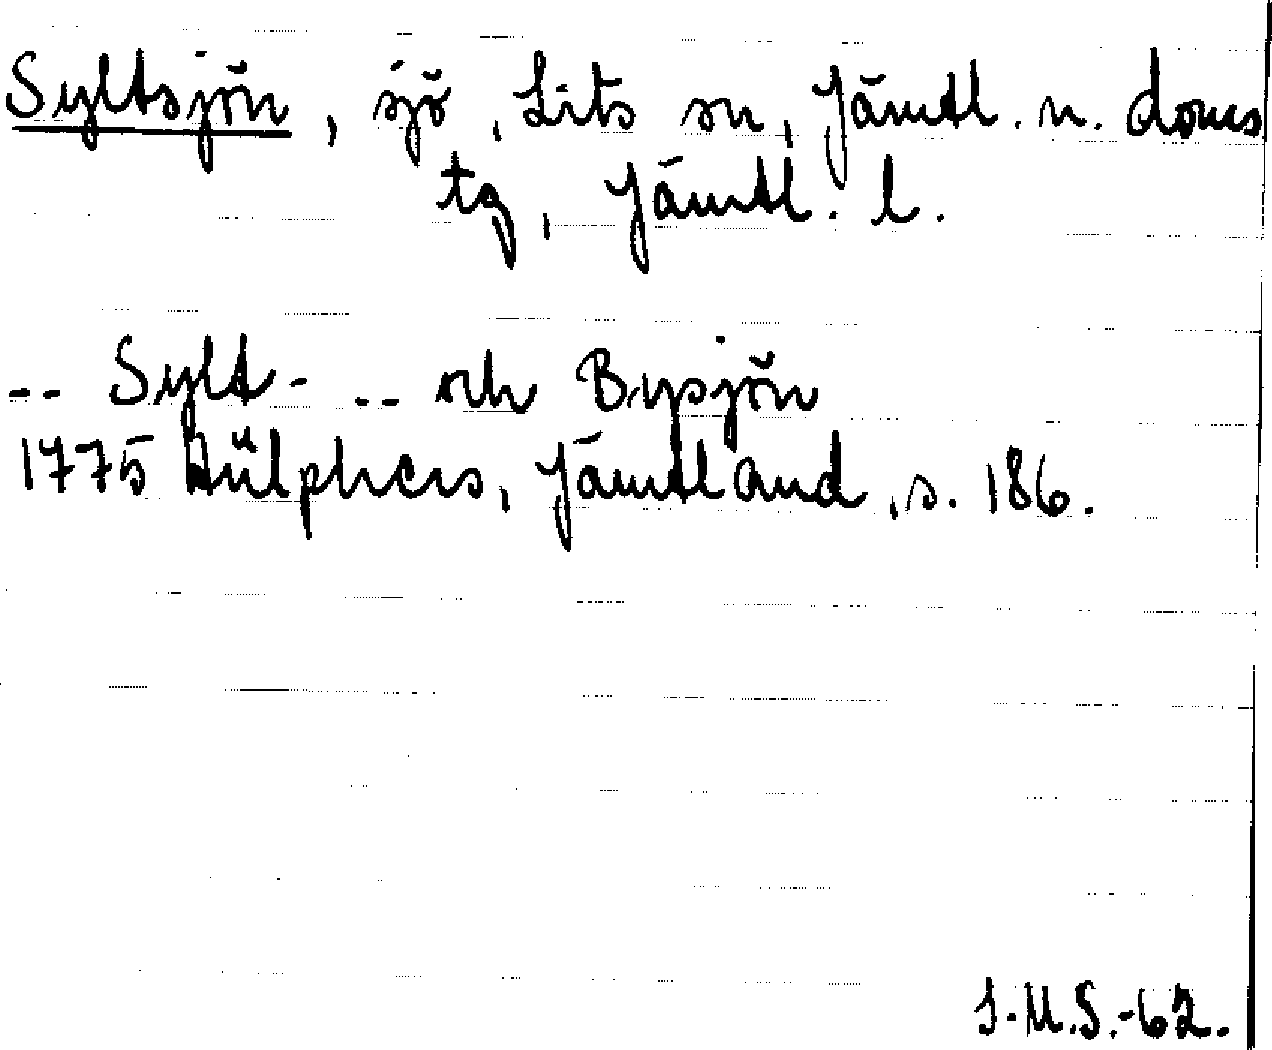 Syltsjön, sjö, Lits sn, Jämtl. n. doms
tg, Jämtl. l.
-- Sylt- -- och Bysjön
1775 Hülphers, Jämtland, s. 186.
I.M.S.-62.